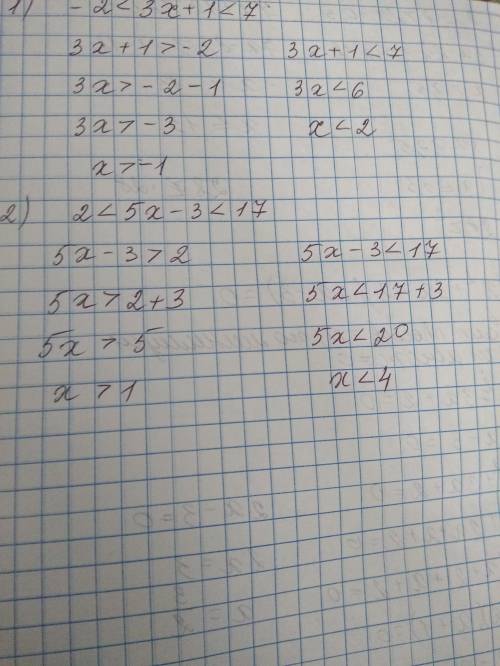 1) -2<3x+1<7
3x+1>-2 3x+1<7
3x>-2-1 3x<6
3x>-3 x<2
x>-1
2) 2<5x-3<17
5x-3>2 5x-3<17
5x>2+3 5x<17+3
5x>5 5x<20
x>1 x<4